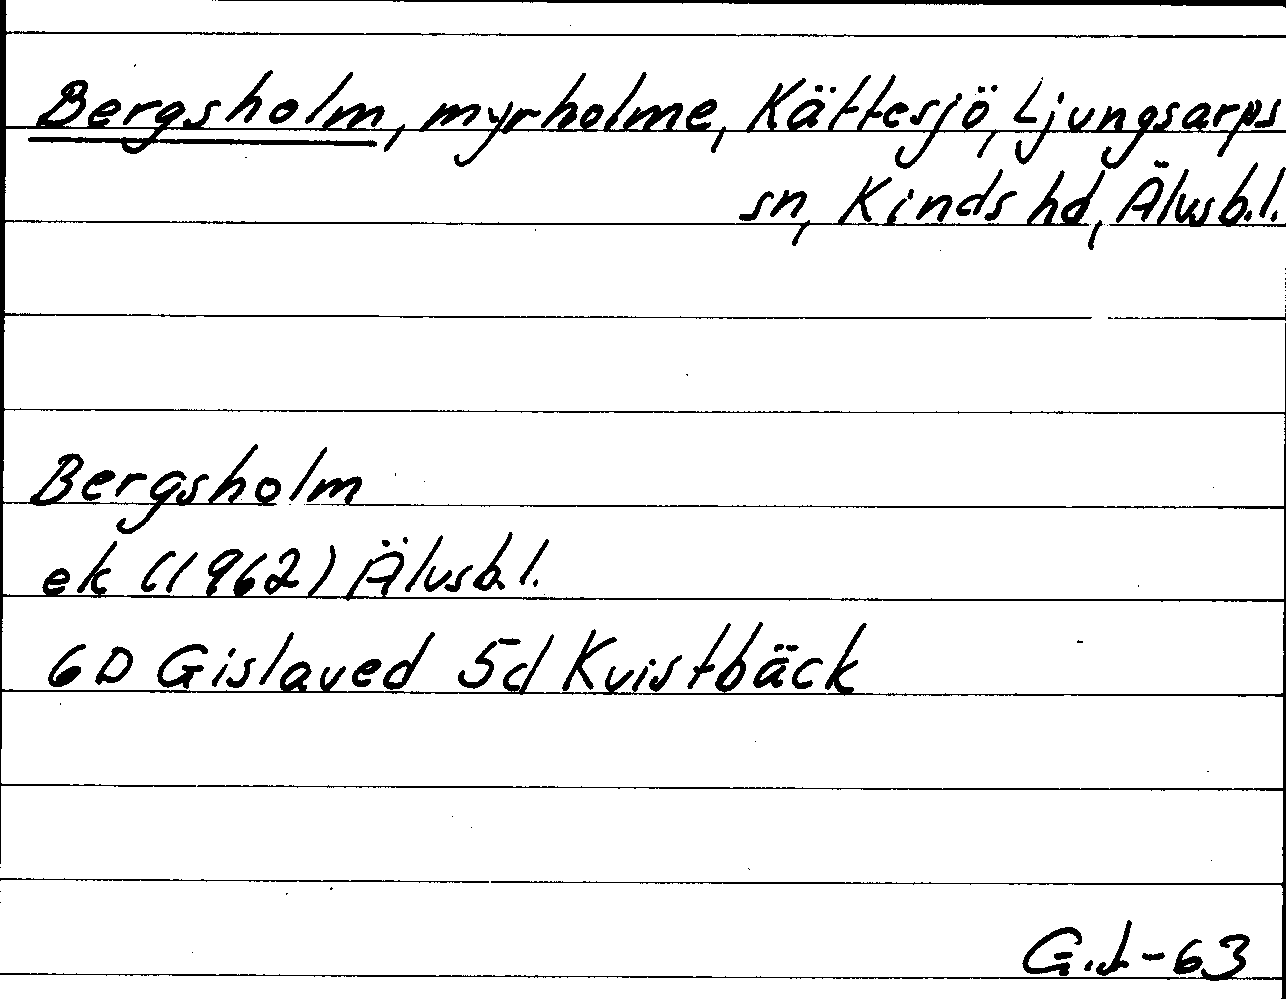 Bergsholm, myrholme, Kättesjö, Ljungsarps
sn, Kinds hd, Älvsb.l.
Bergsholm
ek (1962) Älvsb.l.
6D Gislaved 5d Kvistbäck
-63